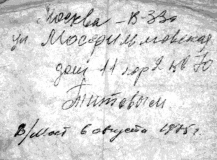 Москва - В-330
ул Мосфильмовская
дом 11 кор 2 кв 70
Титовым.
В/Мост 6 августа 1975г.